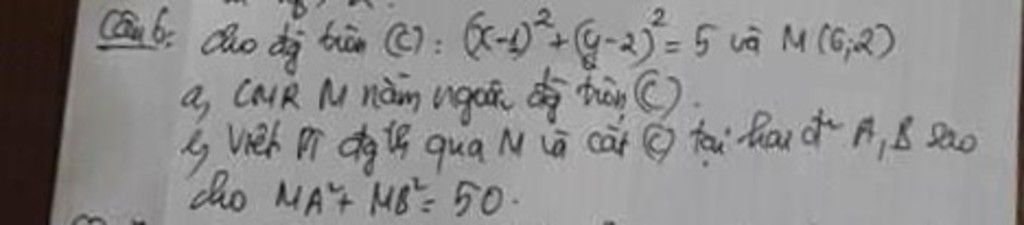 Câu 6: Cho đg tròn (C): (x-1)²+(y-2)²=5 và M(6;2)
a, CMR M nằm ngoài đg tròn (C).
b, Viết PT đg th qua M và cắt (C) tại hai đ A, B sao
cho MA²+ MB²= 50.